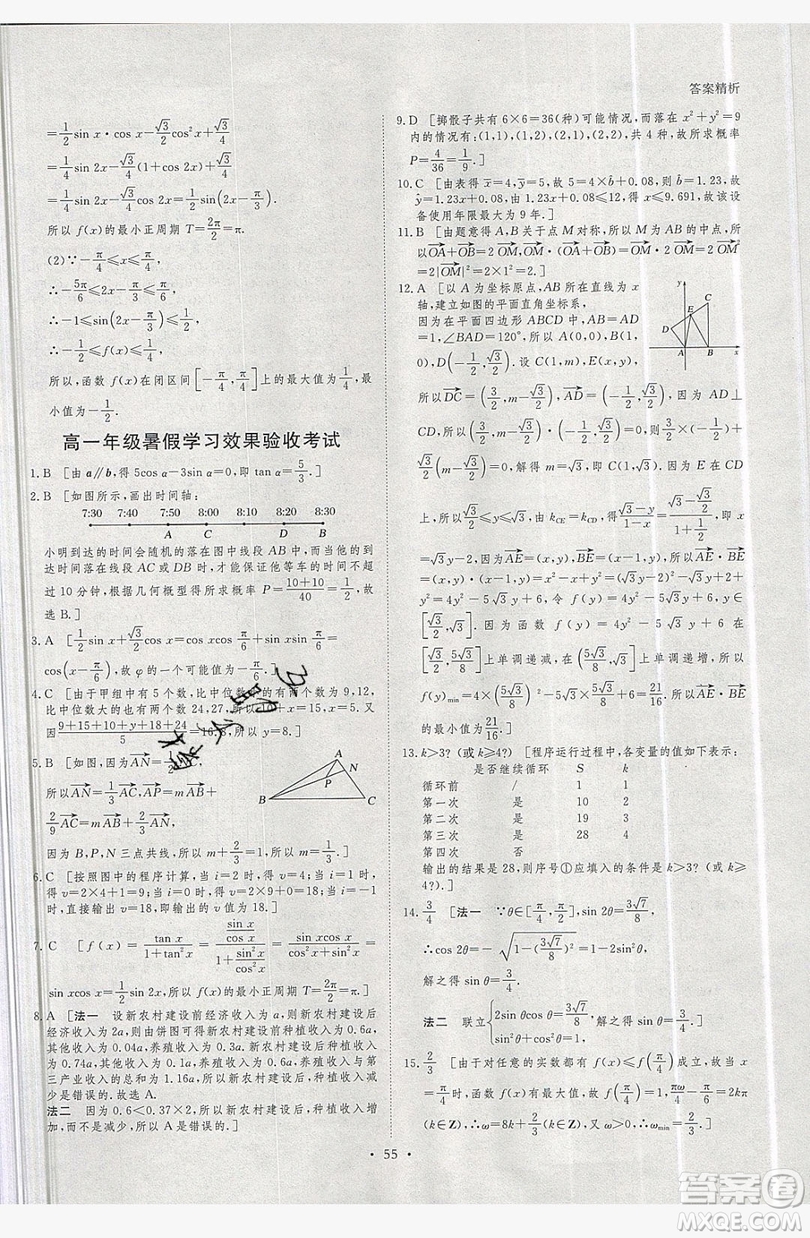 答案精析
=1/2 sin x·cos x-√3/2 cos²x+√3/4
=1/4 sin 2x-√3/4(1+cos 2x)+√3/4
=1/4 sin 2x-√3/4 cos 2x=1/2 sin(2x-π/3).
所以 f(x)的最小正周期 T=2π/2=π.
(2)∵-π/4≤x≤π/4,
∴-5π/6≤2x-π/3≤π/6,
∴-1≤sin(2x-π/3)≤1/2,
∴-1/2≤f(x)≤1/4,
所以,函数 f(x)在闭区间[-π/4,π/4]上的最大值为1/4,最
小值为-1/2.
高一年级暑假学习效果验收考试
1. B [由a∥b,得5cos α-3sin α=0,即 tan α=5/3.]
2. B [如图所示,画出时间轴:
7:30 7:40 7:50 8:00 8:10 8:20 8:30
A C D B
小明到达的时间会随机的落在图中线段 AB 中,而当他的
到达时间落在线段 AC 或 DB 时,才能保证他等车的时间不
超过 10 分钟,根据几何概型得所求概率 P=(10+10)/40=1/2,故
选 B.]
3. A [1/2 sin x+√3/2 cos x=sin π/6 sin x+cos π/6 cos x=
cos(x-π/6),故 φ 的一个可能值为-π/6.]
4. C [由于甲组中有 5 个数,比中位数小的有两个数为 9,12,
比中位数大的也有两个数 24,27,所以10+x=15,x=5.又
因(9+15+10+y+18+24)/5=16.8,所以 y=8.]
5. B [如图,因为AN=1/2 NC,
所以AN=1/3 AC,AP=mAB+
2/9 AC=mAB+2/3 AN,
因为 B,P,N 三点共线,所以 m+2/3=1,所以 m=1/3.]
A N P B C
6. C [按照图中的程序计算,当 i=1 时,v=4;当 i=0 时,
v=2×4+1=9;当 i=-1 时,v=2×9+0=18;当 i=-1-1=-2
时,退出循环,即输出的 v 值为 18.]
7. C [f(x)=tan x/(1+tan²x)=(sin x/cos x)/(1+sin²x/cos²x)=sin xcos x/(cos²x+sin²x)=
sin xcos x=1/2 sin 2x,所以 f(x)的最小正周期 T=2π/2=π.]
8. A [法一 设新农村建设前经济收入为 a,则新农村建设后
经济收入为 2a,则由饼图可得新农村建设前种植收入为 0.6a,
其他收入为 0.04a,养殖收入为 0.3a.新农村建设后种植收入为
0.74a,其他收入为 0.1a,养殖收入为 0.6a,养殖收入与第
三产业收入的总和为 1.16a,所以新农村建设后,种植收入
减少是错误的.故选 A.
法二 因为 0.6<0.37×2,所以新农村建设后,种植收入增
加,而不是减少,所以 A 是错误的.]
9. D [掷骰子共有 6×6=36(种)可能情况,而落在 x²+y²=9
内的情况有:(1,1),(1,2),(2,1),(2,2),共 4 种,故所求概率
P=4/36=1/9.]
10. C [由表得 x̄=4,ȳ=5,故 5=1.23×4+b̂,得 b̂=0.08,所以
ŷ=1.23x+0.08,由 1.23x+0.08≤10 得 x≤9.691,故该设
备使用年限最大为 9 年.]
11. B [由题意得 A,B 关于点 M 对称,所以 M 为 AB 的中点,所
以OA+OB=2 OM,所以(OA+OB)·OM=2 OM·OM
=2|OM|²=2×1²=2.]
12. A [以 A 为坐标原点,AB 所在直线为 x
轴,建立如图的平面直角坐标系,
因为在平面四边形 ABCD 中,AB=AD=
1,∠BAD=120°,所以 A(0,0),B(1,
0),D(-1/2,√3/2).设 C(1,m),E(x,y),
y C E D A B x
所以DC=(3/2,m-√3/2),AD=(-1/2,√3/2).因为 AD⊥
CD,所以(3/2,m-√3/2)·(-1/2,√3/2)=0,则3/2×(-1/2)+
√3/2(m-√3/2)=0,解得 m=√3,即 C(1,√3).因为 E 在 CD
上,所以√3/2≤y≤√3,由 kCE=kCD,得(√3-y)/(1-x)=(√3-√3/2)/(1+1/2),即
x=√3y-2.因为AE=(x,y),BE=(x-1,y),所以AE·BE
=(x,y)·(x-1,y)=x²-x+y²=(√3y-2)²-√3y+2+y²
=4y²-5√3y+6,令 f(y)=4y²-5√3y+6,y∈
[√3/2,√3].因为函数 f(y)=4y²-5√3y+6 在
[√3/2,5√3/8]上单调递减,在(5√3/8,√3]上单调递增,所以
f(y)min=4×(5√3/8)²-5√3×5√3/8+6=21/16.所以AE·BE
的最小值为21/16.]
13. k>3?(或 k≥4?) [程序运行过程中,各变量的值如下表示:
是否继续循环 S k
循环前 / 1 1
第一次 是 10 2
第二次 是 19 3
第三次 是 28 4
第四次 否
输出的结果是 28,则序号①应填入的条件是 k>3?(或 k≥
4?).]
14. 3/4 [法一 ∵θ∈[π/4,π/2],sin 2θ=3√7/8,
∴cos 2θ=-√(1-(3√7/8)²)=-1/8=1-2sin²θ,
解之得 sin θ=3/4.
法二 联立{2sin θcos θ=3√7/8,
sin²θ+cos²θ=1,
解之得 sin θ=3/4.]
15. 2/3 [由于对任意的实数都有 f(x)≤f(π/4)成立,故当 x
=π/4时,函数 f(x)有最大值,故 f(π/4)=1,πω/4-π/6=2kπ
(k∈Z),∴ω=8k+2/3(k∈Z).又 ω>0,∴ωmin=2/3.]
• 55 •
答案圈
MXQE.COM